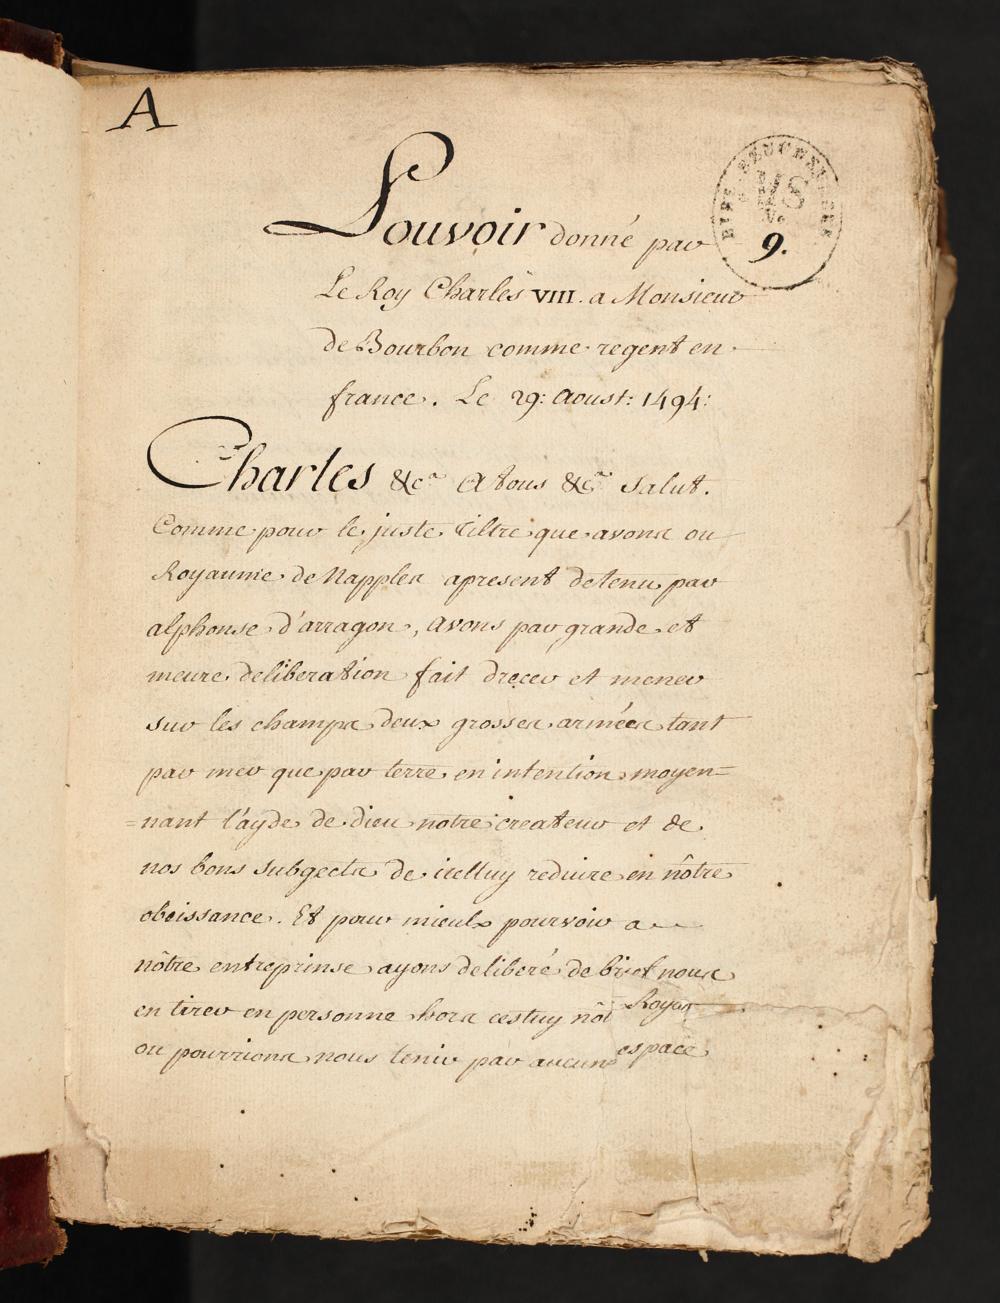 A
Pouvoir donné par
Le Roy Charles VIII. a Monsieur
de Bourbon comme regent en
france. Le 29: Aoust: 1494:
MS
V.
9.
Charles &c.ª A tous &c.ª Salut.
Comme pour le juste tiltre que avons ou
Royaume de Napples apresent detenu par
alphonse d'arragon, avons par grande et
meure deliberation fait drecer et mener
sur les champs deux grosses armées tant
par mer que par terre en intention moyen=
=nant l'ayde de dieu notre createur et de
nos bons subgects de icelluy reduire en nôtre
obeissance. Et pour mieulx pourvoir a
nôtre entreprinse ayons deliberé de brief nous
en tirer en personne hors cestuy nôt Royau
ou pourrions nous tenir par aucuns espace